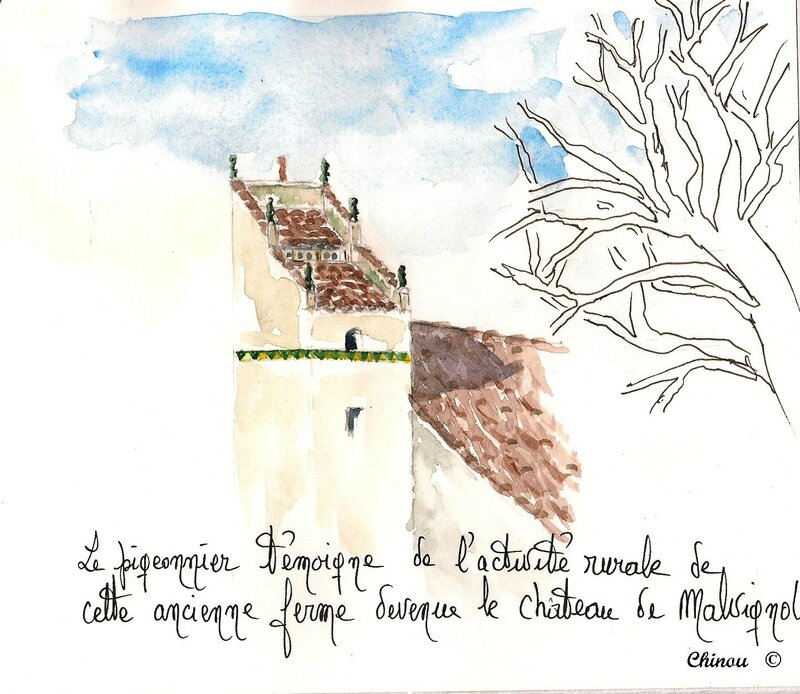 Le pigeonnier témoigne de l'activité rurale de
cette ancienne ferme devenue le château de Malvignol
Chinou ©